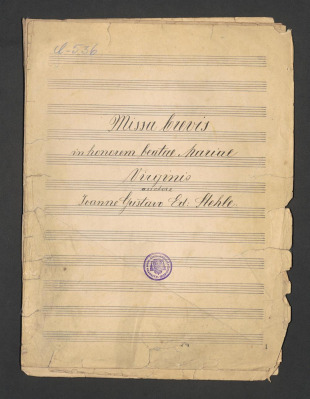 Missa brevis
in honorem beatae Mariae
Virginis
auctore
Joanne Gustavo Ed. Stehle